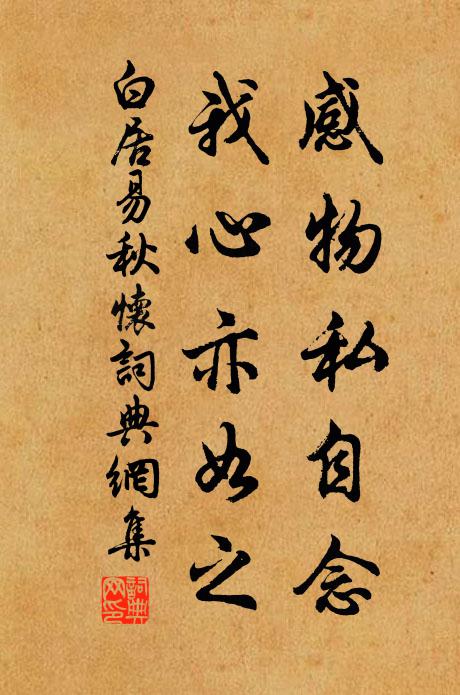 感物私自念
我心亦如之
白居易秋懷詞典網集
詞典
网印